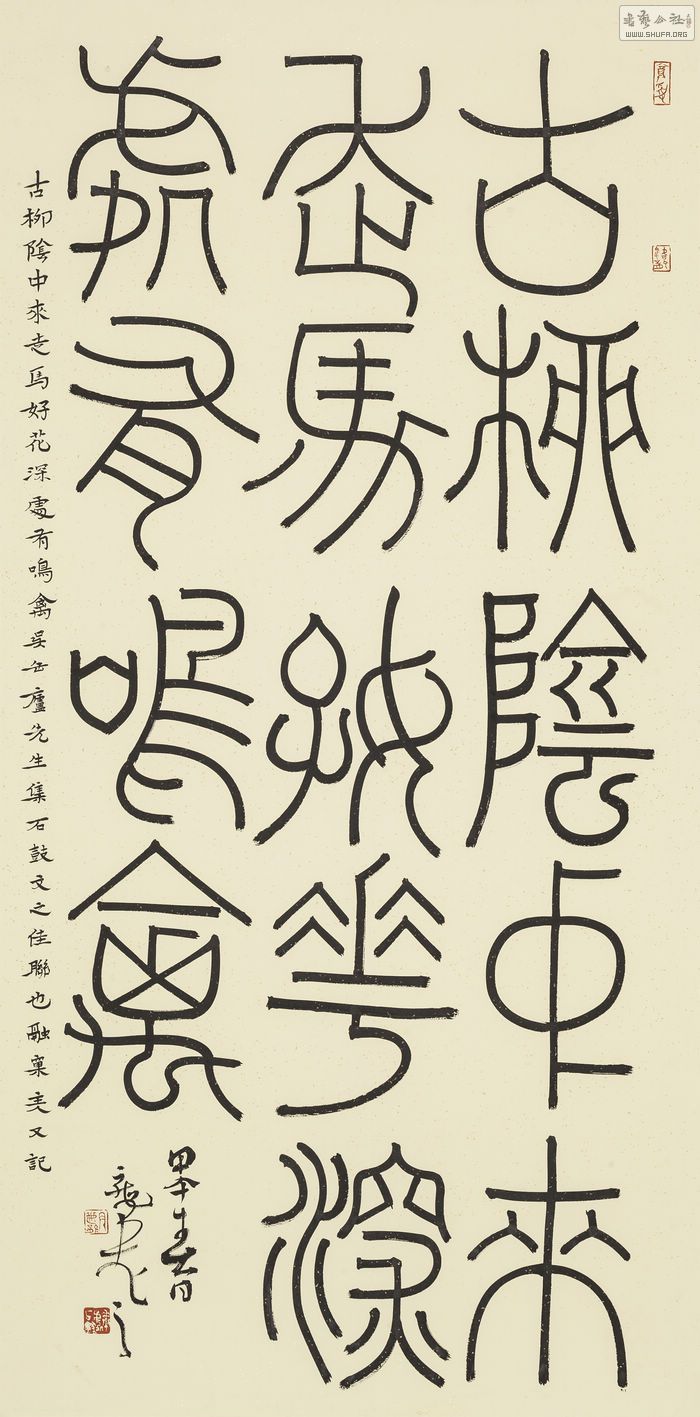 古柳陰中來
走馬好花深
處有鳴禽
甲午春月
古柳陰中來走馬好花深處有鳴禽吳缶廬先生集石鼓文之佳聯也融窠美又記
書藝公社
WWW.SHUFA.ORG